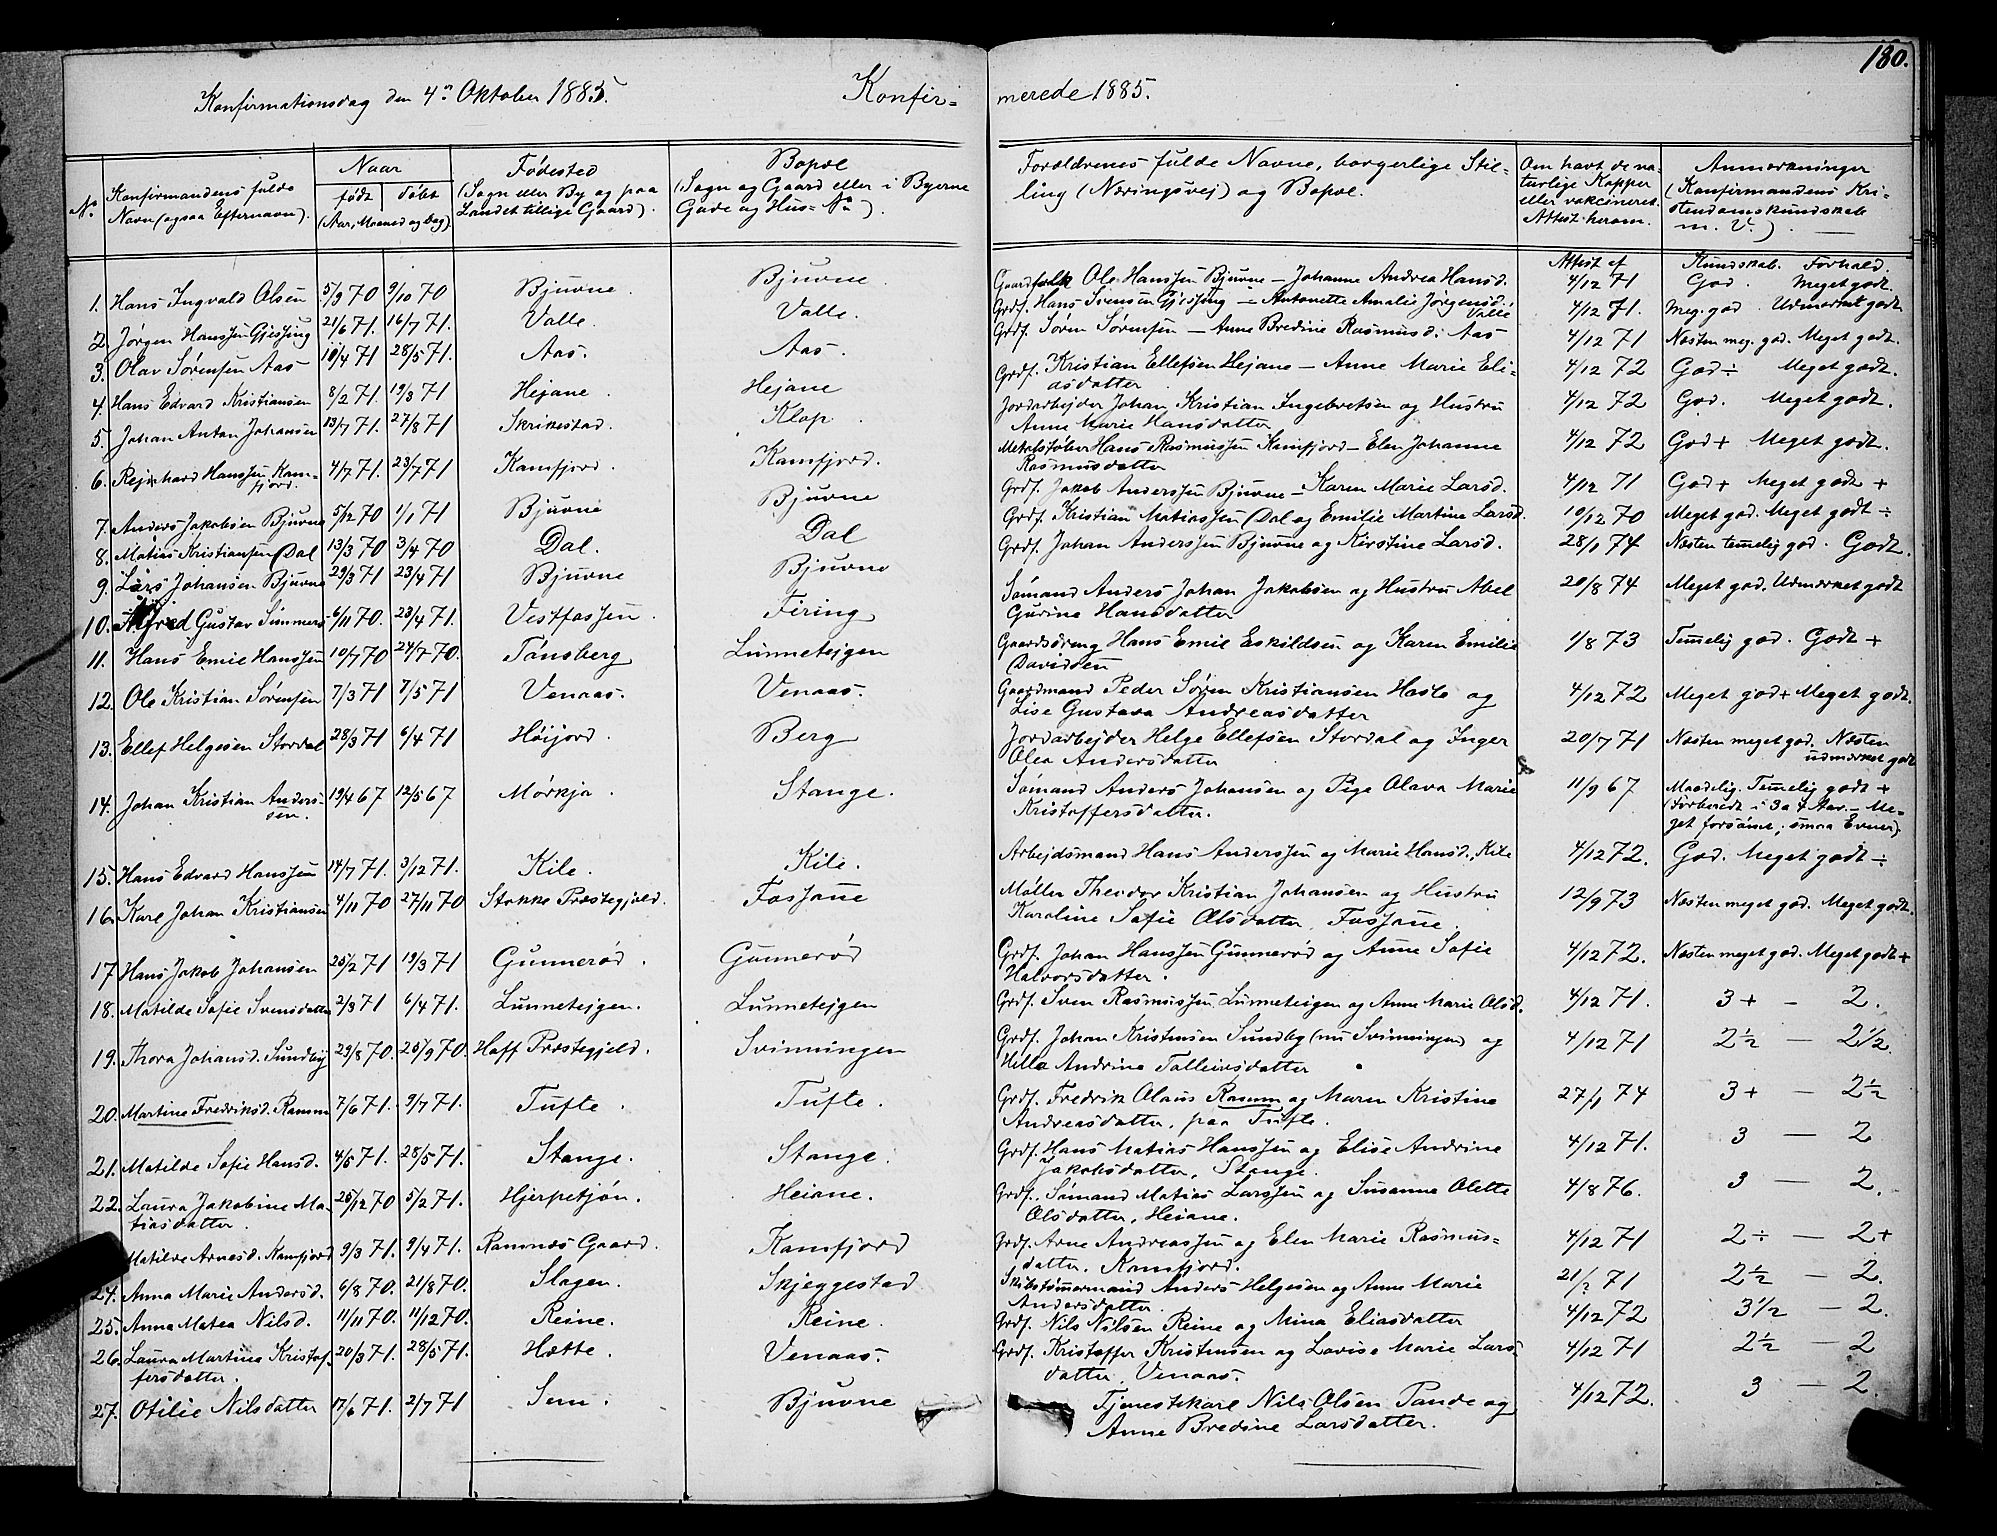 180.
Konfirmationsdag den 4de Oktober 1885. Konfir= merede 1885.
No Konfirmandens fulde Navn (ogsaa Efternavn). Naar født døbt (Aar, Maaned og Dag) Fødested (Sogn eller By og paa Landet tillige Gaard). Bopæl (Sogn og Gaard eller i Byerne Gade og Hus-No). Forældrenes fulde Navne, borgerlige Stilling (Næringsvej) og Bopæl. Om havt de naturlige Kopper eller vakcineret. Attest herom. Anmærkninger (Konfirmandens Kristendomskundskab m. V.)
Attest af Kundskab. Forhold.
1. Hans Ingvald Olsen 5/9 70 9/10 70 Bjuvne. Bjuvne. Gaardfolk Ole Hanssen Bjuvne – Johanne Andrea Hansd. 4/12 71 God. Meget godt.
2. Jørgen Hanssen Gjessing 21/6 71. 16/7 71. Valle. Valle. Grdf. Hans Svensen Gjessing – Antonette Amalie Jørgensd. Valle 4/12 71. Meg. god. Udmærket godt
3. Olav Sørensen Aas 10/4 71 28/5 71. Aas. Aas. Grdf. Søren Sørensen – Anne Bredine Rasmusd. Aas 4/12 71 Næsten meg. god. Meget godt.
4. Hans Edvard Kristiansen 8/2 71. 19/3 71 Hejane. Hejane Grdf. Kristian Ellefsen Hejane – Anne Marie Eli-
asdatter 4/12 72 God ÷ Meget godt.
5. Johan Anton Johansen 13/7 71. 27/8 71 Skrikestad. Klop. Jordarbejder Johan Kristian Ingebretsen og Hustru
Anne Marie Hansdatter 4/12 72 God. Meget godt.
6. Rejnhard Hanssen Kam-
fjord. 4/7 71. 23/7 71 Kamfjord. Kamfjord. Hans Rasmussen Kamfjord – Elen Johanne
Rasmusdatter 4/12 72 God + Meget godt.
7. Anders Jakobsen Bjuvne 5/12 70 1/1 71 Bjuvne Bjuvne Grdf. Jakob Anderssen Bjuvne – Karen Marie Larsd. 4/12 71 God + Meget godt +
8. Matias Kristiansen Dal 13/3 70 3/4 70 Dal. Dal Grdf. Kristian Matiassen Dal og Emilie Martine Larsd. 10/12 70 Meget god. Meget godt ÷
9. Lars Johansen Bjuvne 29/3 71 23/4 71 Bjuvne Bjuvne Grdf. Johan Anderssen Bjuvne og Kirstine Larsd. 28/1 74 Næsten temelig god. Godt.
10. Alfred Gustav Simmers 6/11 70. 23/4 71. Vestfossen. Firing Sømand Anders Johan Jakobsen og Hustru Abel
Gurine Hansdatter 20/8 74 Meget god. Udmærket godt
11. Hans Emil Hanssen 10/7 70 24/7 70. Tønsberg Lunnetejgen Gaardsdreng Hans Emil Eskildsen og Karen Emilie
Davidsen 1/8 73 Temelig god. Godt +
12. Ole Kristian Sørensen 7/3 71 7/5 71 Venaas. Venaas. Gaardmand Peder Søren Kristiansen Hasle og
Lise Gustava Andreasdatter 4/12 72 Meget god + Meget godt.
13. Ellef Helgesen Stordal 28/3 71 6/4 71 Høijord. Berg Jordarbejder Helge Ellefsen Stordal og Inger
Olea Andersdatter 20/7 71 Næsten meget god. Næsten
udmærket godt
14. Johan Kristian Anders-
sen. 19/4 67 12/5 67 Mørkja. Stange. Sømand Anders Johansen og Pige Olava Marie
Kristoffersdatter. 11/9 67 Maadelig. Temelig godt +
(Forberedt i 3 a 4 Aar. – Me-
get forsømt; smaa Evner).
15. Hans Edvard Hanssen 14/7 71. 3/12 71. Kile. Kile. Arbejdsmand Hans Anderssen og Marie Hansd., Kile 4/12 72. God. Meget godt ÷
16. Karl Johan Kristiansen 4/11 70 27/11 70 Stokke Præstegjeld. Fossane Møller Theodor Kristian Johansen og Hustru
Karoline Sofie Olsdatter, Fossane. 12/9 73 Næsten meget god. Meget godt.
17. Hans Jakob Johansen 25/2 71 19/3 71 Gunnerød. Gunnerød Grdf. Johan Hanssen Gunnerød og Anne Sofie
Halvorsdatter. 4/12 72. Næsten meget god. Meget godt +
18. Matilde Sofie Svensdatter 2/3 71 6/4 71. Lunnetejgen. Lunnetejgen Grdf. Sven Rasmussen Lunneteigen og Anne Marie Olsd. 4/12 71. 3 + – 2.
19. Thora Johansd. Sundby 29/8 70. 25/9 70. Hoff Præstegjeld. Svinningen Grdf. Johan Kristensen Sundby (nu Svinningen) og
Helle Andrine Tolleivsdatter 4/12 71 2 1/2 – 2 1/2
20. Martine Fredriksd. Ramm 7/6 71. 9/7 71. Tufte. Tufte. Grdf. Fredrik Olaus Ramm og Maren Kristine
Andreasdatter, paa Tufte. 27/1 74 3 + – 2 1/2
21. Matilde Sofie Hansd. 4/5 71. 28/5 71. Stange. Stange. Grdf. Hans Matias Hanssen og Elise Andrine
Jakobsdatter, Stange. 4/12 71. 3 – 2
22. Laura Jakobine Ma-
tiasdatter. 25/12 70 5/2 71. Hjerpetjøn. Heiane. Grdf. Sømand Matias Larssen og Susanne Olette
Olsdatter, Heiane. 4/8 76. 3 – 2.
Matilde Arnesd. Kamfjord 9/3 71. 9/4 71. Ramnes Gaard. Kamfjord Grdf. Arne Andreassen og Elen Marie Rasmus-
datter, Kamfjord. 4/12 71 2 ÷ – 2 +
24. Anna Marie Andersd. 6/8 70. 21/8 70. Slagen. Skjeggestad Skibstømmermand Anders Helgesen og Anne Marie
Andersdatter. 21/2 71 2 1/2 – 2.
25. Anna Matea Nilsd. 11/11 70. 11/12 70. Reine. Reine. Grdf. Nils Nilsen Reine og Mina Eliasdatter 4/12 72 3 1/2 – 2.
26. Laura Martine Kristof-
fersdatter. 20/3 71. 28/5 71. Hætte. Venaas. Grdf. Kristoffer Kristensen og Lovise Marie Lars-
datter, Venaas. 4/12 71 2 1/2 – 2
27. Otilie Nilsdatter 17/6 71. 2/7 71 Sem. Bjuvne Tjenestekarl Nils Olsen Tande og
Anne Bredine Larsdatter. 4/12 72. 3 – 2.